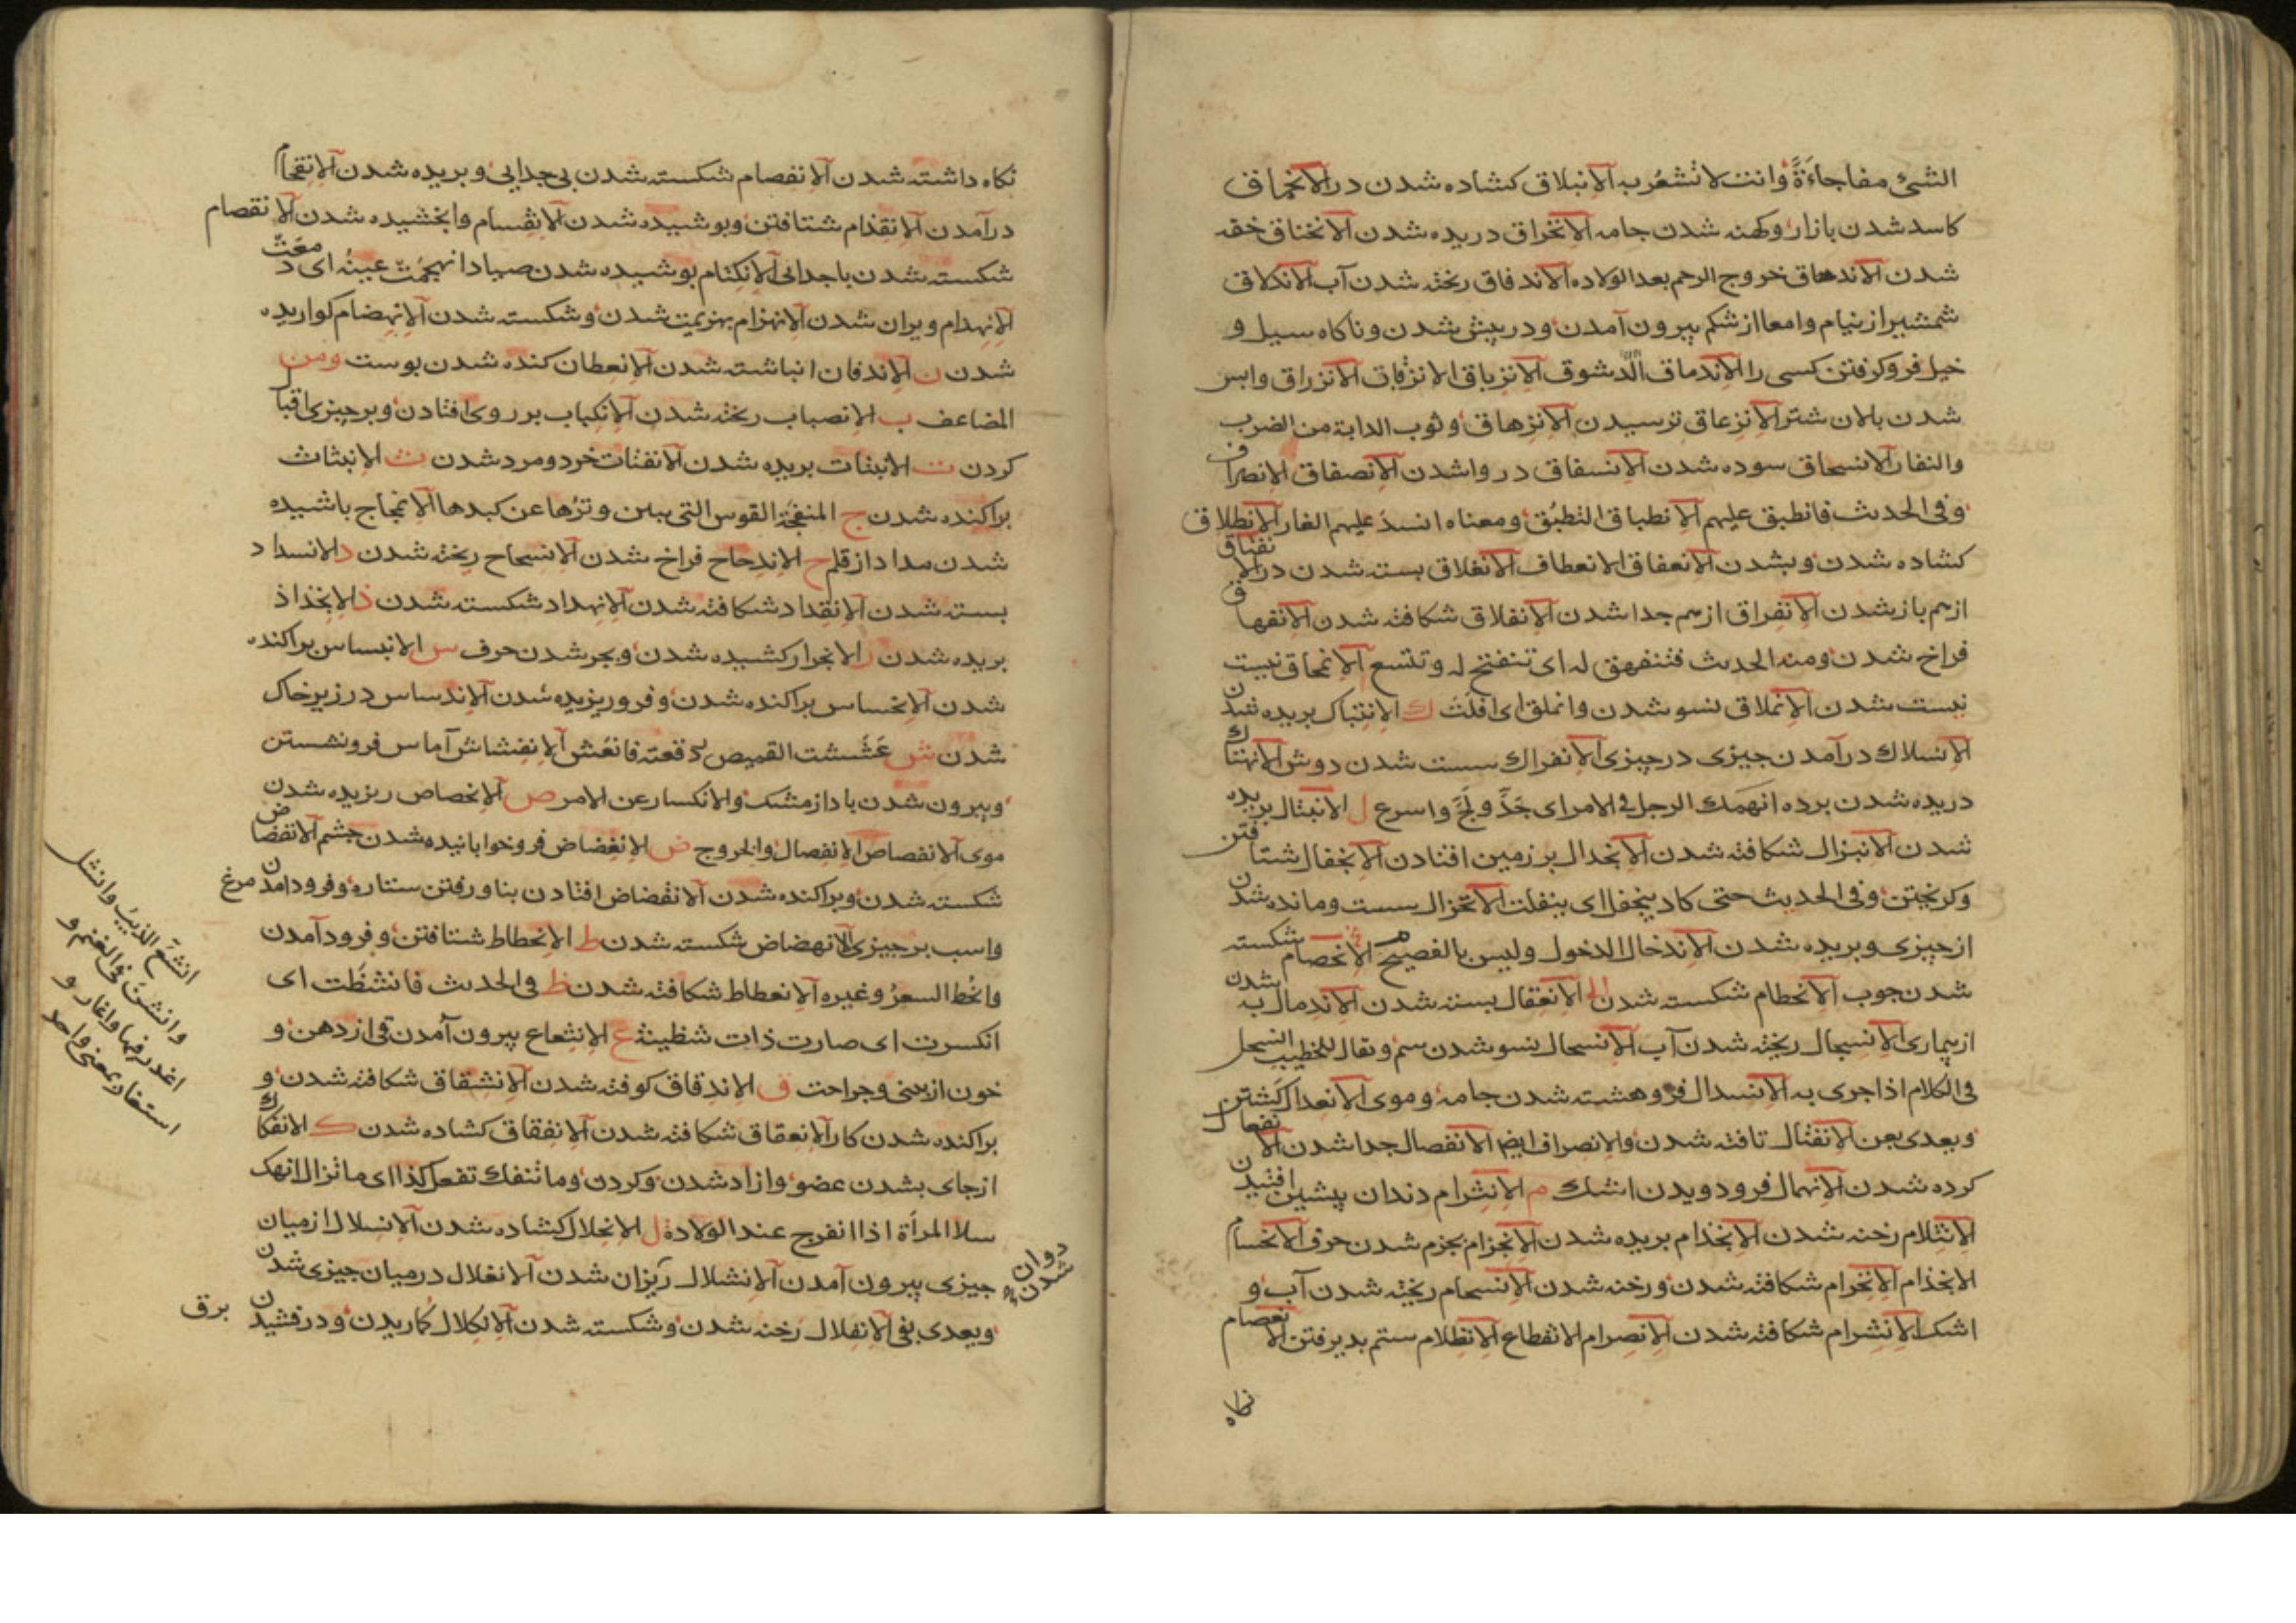 الشئ مفاجاءَةً وانت لا تشعُر به الانبلاق كشاده شدن در الانحماق
كاسد شدن بازار وكهنه شدن جامه الانخراق دريده شدن الانخناق خفه
شدن الاندحاق خروج الرحم بعد الولاده الاندفاق ريخته شدن آب الاندلاق
شمشير از نيام وامعا از شكم بيرون آمدن ودر پيش شدن وناكاه سيل و
خيل فرو كرفتن كسى را الاندماق الدشوق الانزباق الانزقاق الانزراق واپس
شدن بالان شتر الانزعاق ترسيدن الانزهاق وثوب الدابة من الضرب
والنفار الانسحاق سوده شدن الانسفاق در واشدن الانصفاق الانصراف
وفى الحديث فانطبق عليهم الانطباق التطبُق ومعناه انسدّ عليهم الغار الانطلاق
كشاده شدن وبشدن الانعفاق الانعطاف الانغلاق بسته شدن در الانفتاق
از هم باز شدن الانفراق از هم جدا شدن الانفلاق شكافته شدن الانفهاق
فراخ شدن ومنه الحديث فتنفهق له اى تنفتح له وتتسع الانمحاق نيست
نيست شدن الانملاق نسو شدن وانملق اى افلت ك الانبتاك بريده شدن
الانسلاك درآمدن چيزى در چيزى الانفراك سست شدن دوش الانهتاك
دريده شدن برده انهمك الرجل فى الامر اى جَدَّ ولَجَّ واسرع ل الانبتال بريده
شدن الانبزال شكافته شدن الانجدال بر زمين افتادن الانجفال شتافتن
وكريختن وفى الحديث حتى كاد ينجفل اى ينفلت الانخزال سست ومانده شدن
از چيزى وبريده شدن الاندخال الدخول وليس بالفصيح الانحصام شكسته
شدن چوب الانحطام شكسته شدن الانعقال بسته شدن الاندمال به شدن
از بيمارى الانسجال ريخته شدن آب الانسحال نسو شدن سم ويقال للخطيب انسحل
فى الكلام اذا جرى به الانسدال فرو هشته شدن جامه وموى الانعدال كشتن
ويعدى بعن الانفتال تافته شدن والانصراف ايضا الانفصال جدا شدن الانفعال
كرده شدن الانهمال فرو دويدن اشك م الانثرام دندان پيشين افتيدن
الانثلام رخنه شدن الانجذام بريده شدن الانجزام بجزم شدن حرف الانحسام
الانخذام الانخرام شكافته شدن ورخنه شدن الانسجام ريخته شدن آب و
اشك الانشرام شكافته شدن الانصرام الانقطاع الانظلام ستم بديرفتن الانعصام
نكاه
نكاه داشته شدن الانفصام شكسته شدن بى جدايى وبريده شدن الانقحام
درآمدن الانقذام شتافتن وپوشيده شدن الانقسام وابخشيده شدن الانقصام
شكسته شدن باجدائى الانكتام پوشيده شدن انهجمت عينه اى دمعت
الانهدام ويران شدن الانهزام بهزيمت شدن وشكسته شدن الانهضام كواريده
شدن ن الاندفان انباشته شدن الانعطان كنده شدن پوست ومن
المضاعف ب الانصباب ريخته شدن الانكباب بر روى افتادن وبر چيزى اقبال
كردن ت الانبتات بريده شدن الانفتات خرد ومرد شدن ث الانبثاث
براكنده شدن ج المنفجّة القوس التى يبين وترها عن كبدها الانمجاج پاشيده
شدن مداد از قلم ح الاندحاح فراخ شدن الانسحاح ريخته شدن د الانسداد
بسته شدن الانقداد شكافته شدن الانهداد شكسته شدن ذ الانجذاذ
بريده شدن ر الانجرار كشيده شدن وبجر شدن حرف س الانبساس براكنده
شدن الانحساس براكنده شدن وفرو ريزيده شدن الاندساس در زير خاك
شدن ش عَشَشت القميص رقعته فانعش الانفشاش آماس فرو نشستن
وبيرون شدن باد از مشك والانكسار عن الامر ص الانحصاص ريزيده شدن
موى الانفصاص الانفصال والخروج ض الانغضاض فرو خوابانيده شدن چشم الانفضاض
شكسته شدن وبراكنده شدن الانقضاض افتادن بنا ورفتن ستاره وفرود آمدن مرغ
واسب بر چيزى الانهضاض شكسته شدن ط الانحطاط شتافتن وفرود آمدن
وانحط السعرُ وغيره الانعطاط شكافته شدن ظ وفى الحديث فانشظّت اى
انكسرت اى صارت ذات شظية ع الانثعاع بيرون آمدن قى از دهن و
خون از بينى وجراحت ق الاندقاق كوفته شدن الانشقاق شكافته شدن و
براكنده شدن كار الانعقاق شكافته شدن الانفقاق كشاده شدن ك الانفكاك
از جاى بشدن عضو وازاد شدن وكردن وما تنفك تفعل كذا اى ما تزال انهك
سلا المرأة اذا انفرج عند الولادة ل الانحلال كشاده شدن الانسلال از ميان
چيزى بيرون آمدن الانشلال ريزان شدن الانغلال در ميان چيزى شدن
ويعدى بفى الانفلال رخنه شدن وشكسته شدن الانكلال كماريدن ودرفشيدن برق
دوان
شدن
انشع الذيب وانشل
وانشن فى الغنم و
اغدر فيها واغار و
استغار بمعنى واحد